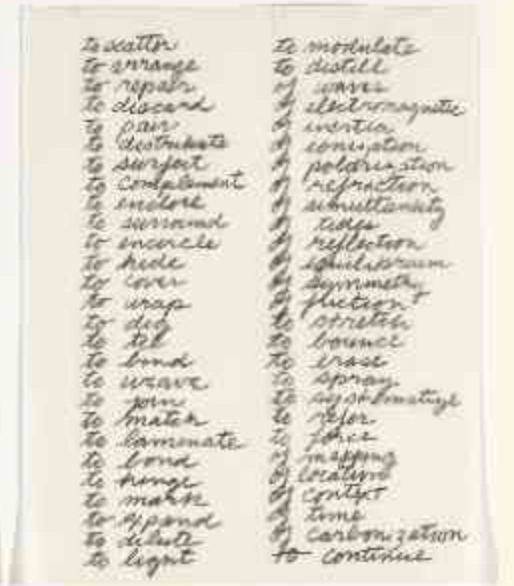 to scatter
to arrange
to repair
to discard
to pair
to distribute
to surfeit
to complement
to enclose
to surround
to encircle
to hide
to cover
to wrap
to dig
to tie
to bind
to weave
to join
to match
to laminate
to bond
to hinge
to mark
to expand
to dilute
to light
to modulate
to distill
of waves
of electromagnetic
of inertia
of ionization
of polarization
of refraction
of simultaneity
of tides
of reflection
of equilibrium
of symmetry
of friction
to stretch
to bounce
to erase
to spray
to systematize
to refer
to force
of mapping
of location
of context
of time
of carbonization
to continue